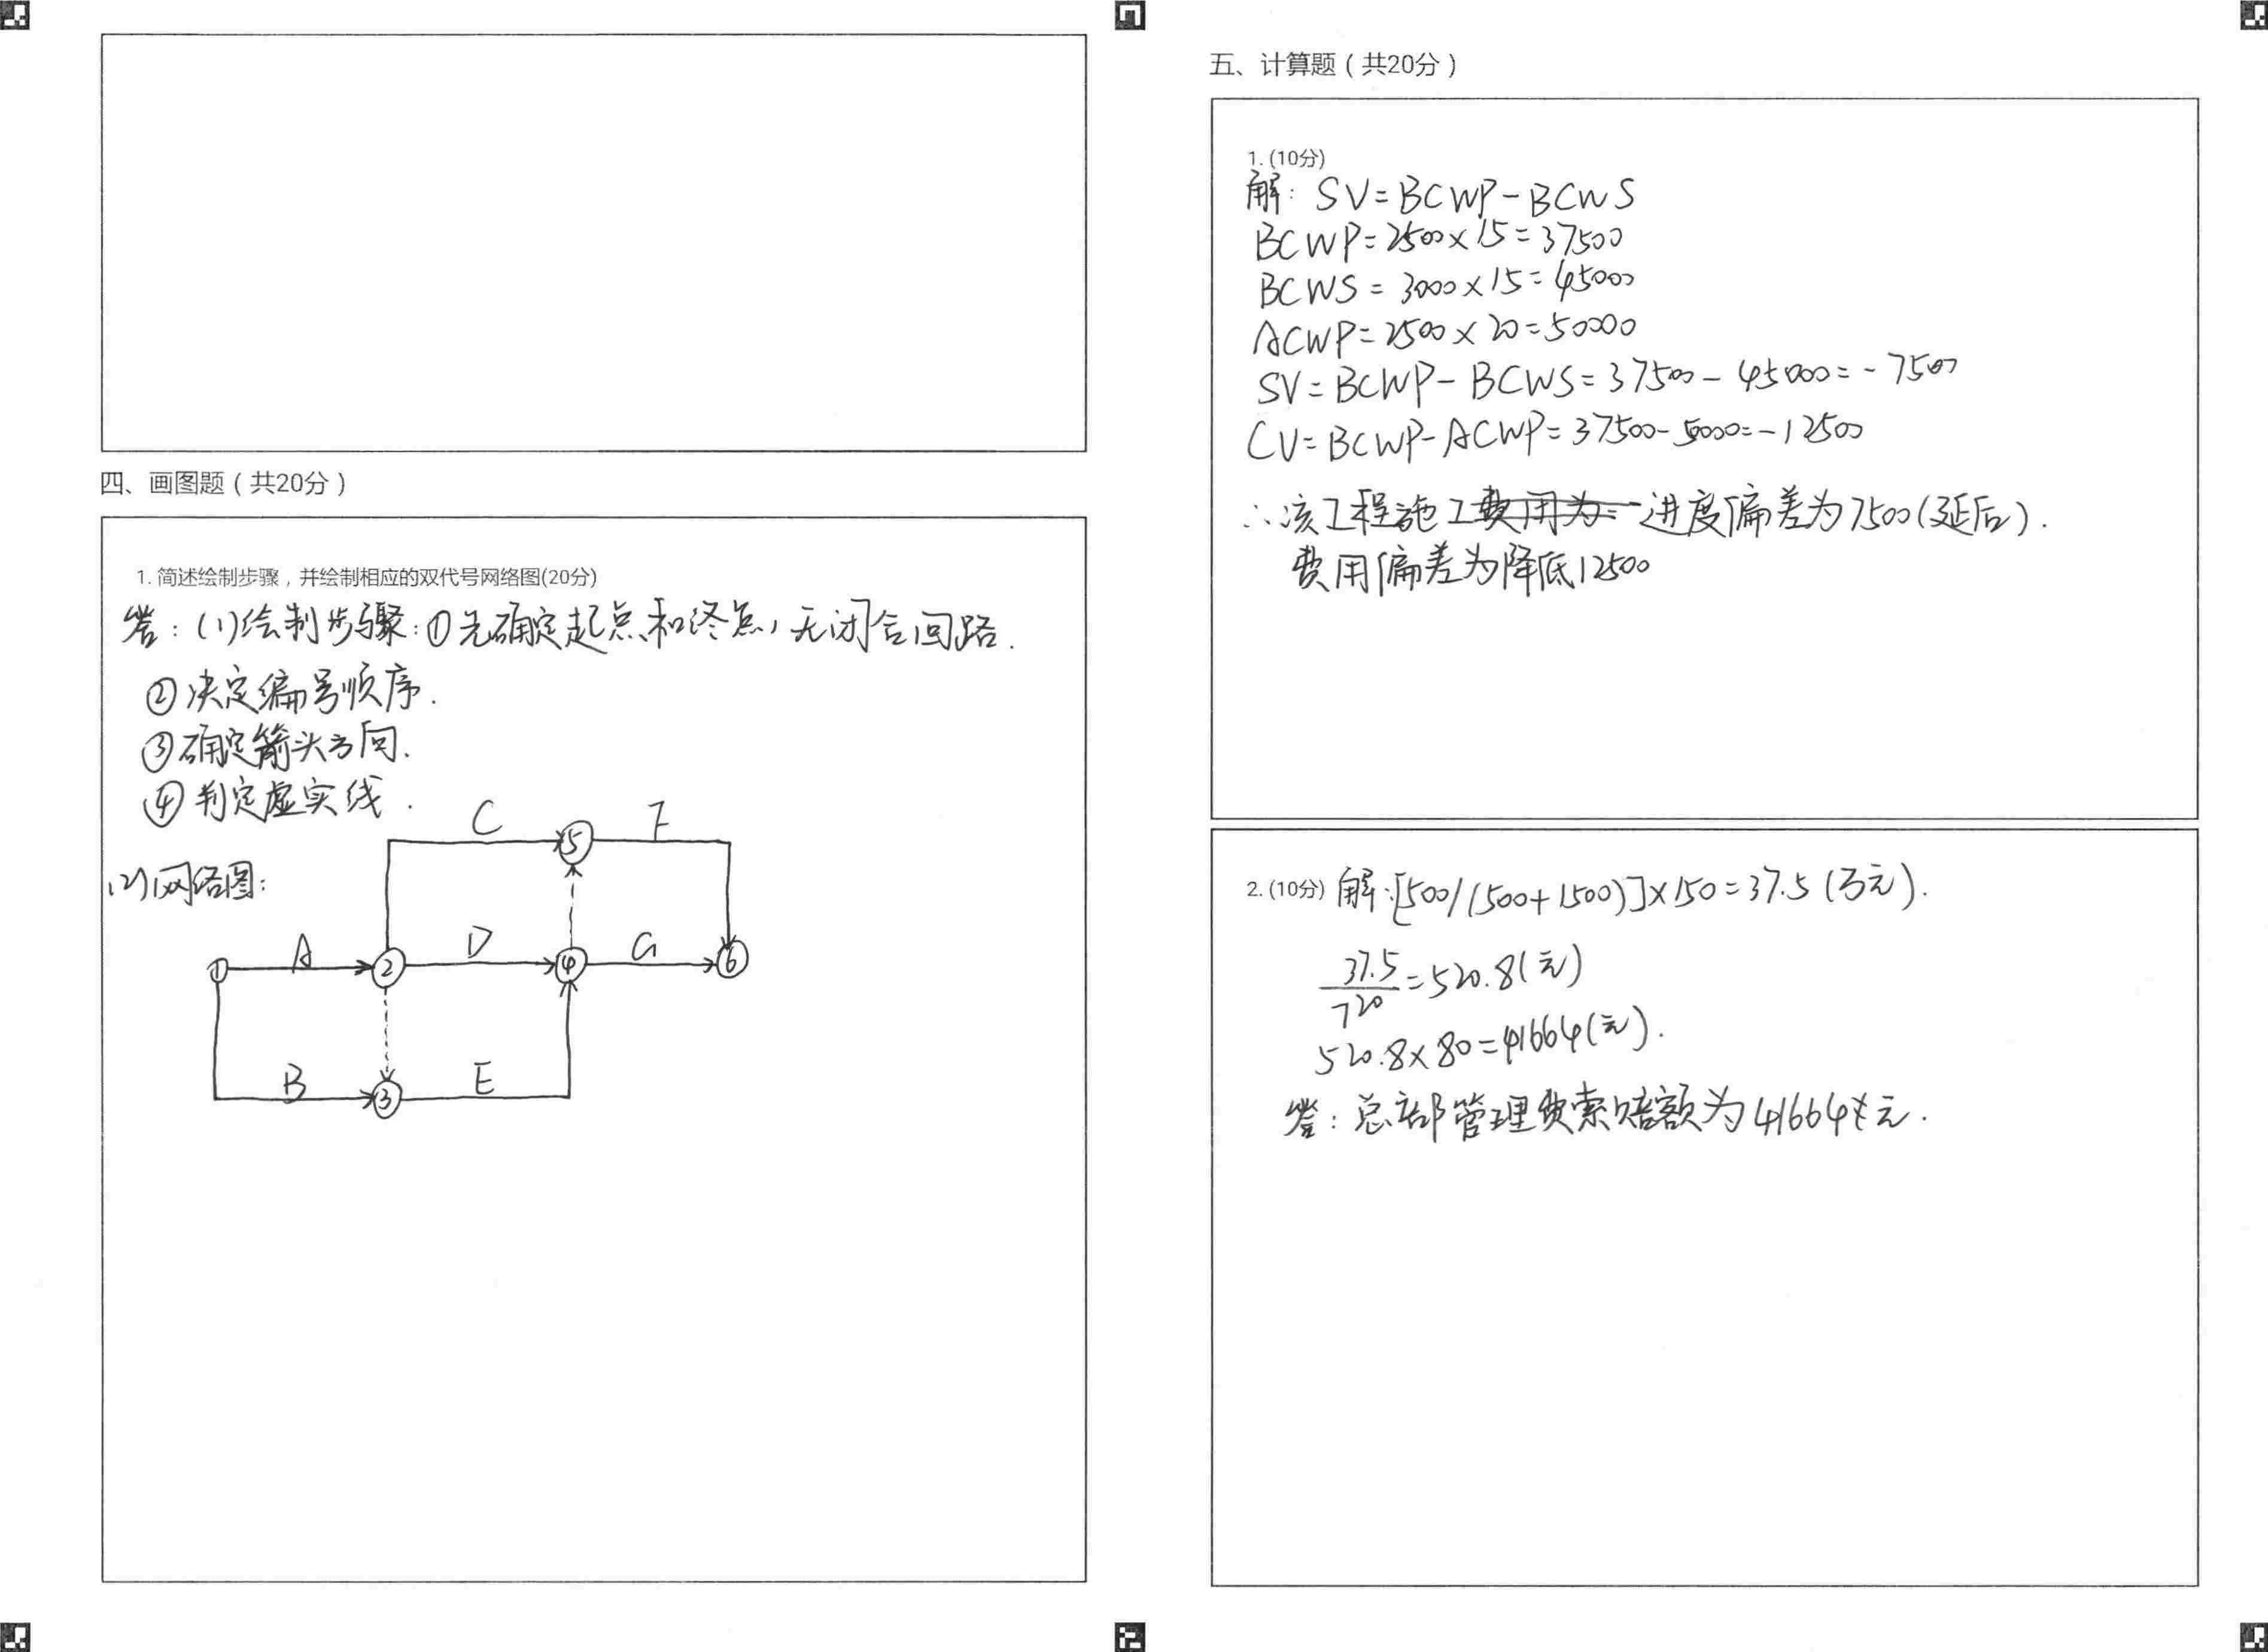 四、画图题（共20分）
1. 简述绘制步骤，并绘制相应的双代号网络图(20分)
答：(1)绘制步骤：①先确定起点和终点，无闭合回路.
②决定编号顺序.
③确定箭头方向.
④判定虚实线.
(2)网络图：
C ⑤ F
① A ② D ④ G ⑥
B ③ E
五、计算题（共20分）
1. (10分)
解：SV=BCWP-BCWS
BCWP=2500×15=37500
BCWS=3000×15=45000
ACWP=2500×20=50000
SV=BCWP-BCWS=37500-45000=-7500
CV=BCWP-ACWP=37500-5000=-12500
∴该工程施工费用为=进度偏差为7500(延后).
费用偏差为降低12500
2. (10分) 解:[500/(500+1500)]×150=37.5(万元).
37.5/720=520.8(元)
520.8×80=41664(元).
答：总部管理费索赔额为41664元.